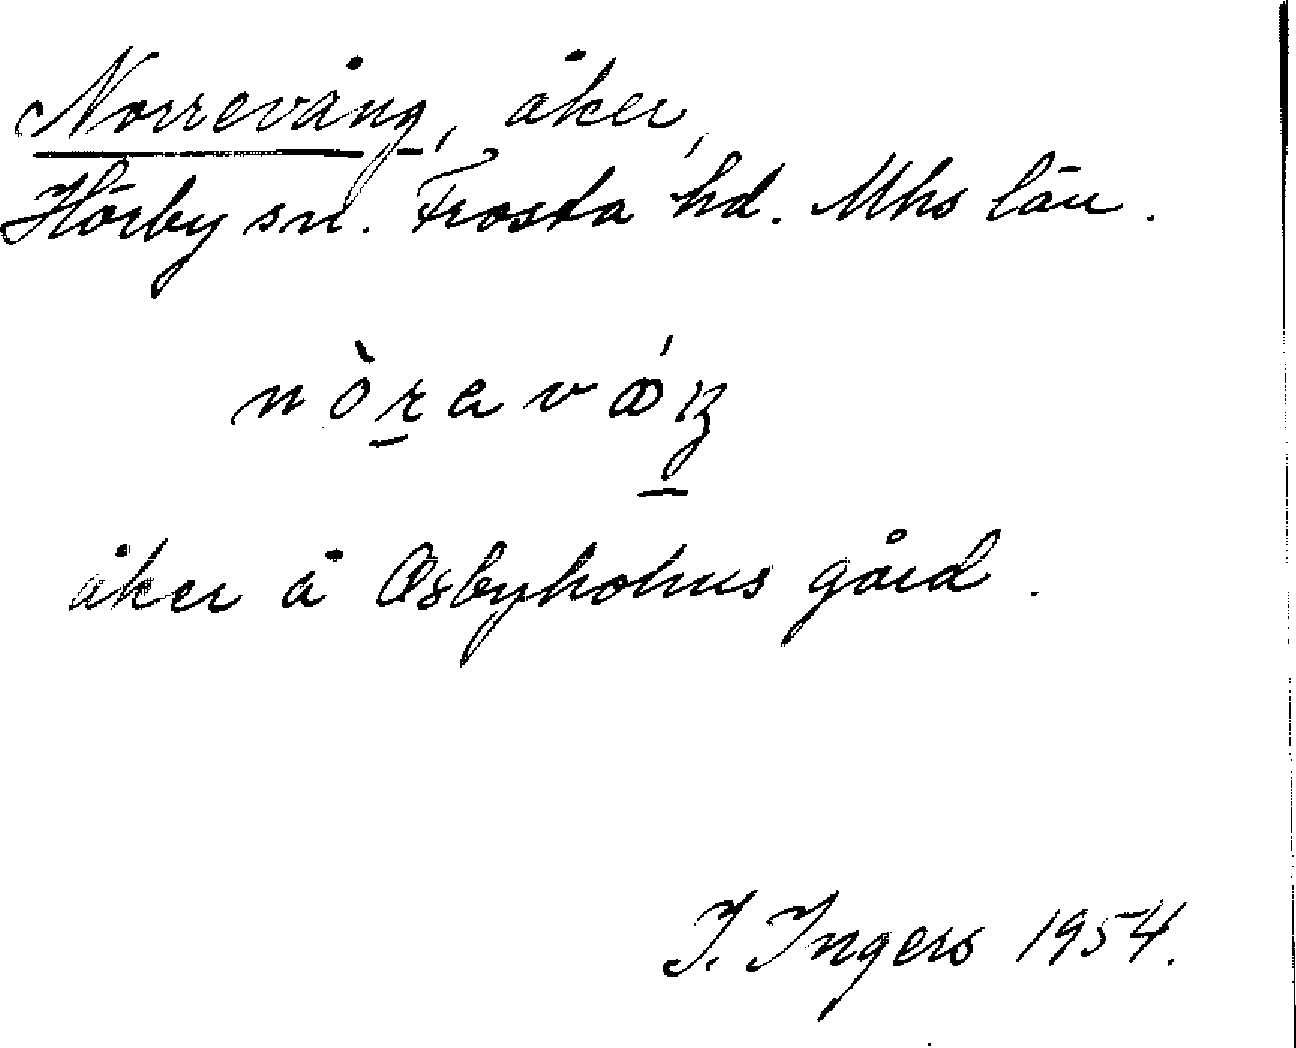 Norrevång, åker,
Hörby sn. Frosta hd. Mhs län.
nòravóŋ
åker å Osbyholms gård.
I. Ingers 1954.